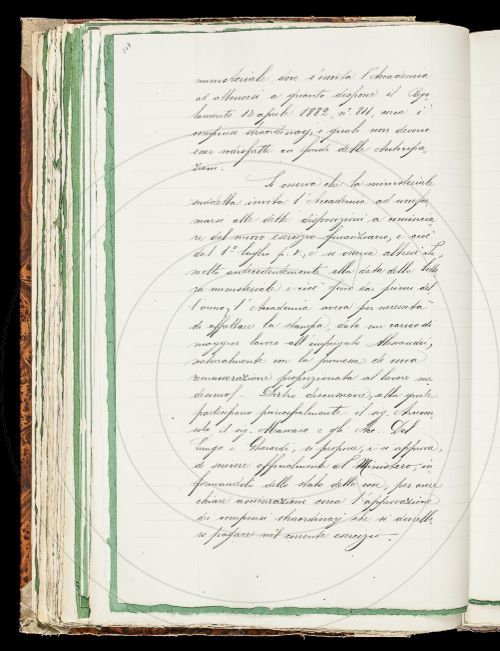 ministeriale dove s'invita l'Accademia
ad attenersi a quanto dispone il Rego-
lamento 13 aprile 1882, n°. 844, circa i
compensi straordinarj, i quali non devono
esser sodisfatti coi fondi delle Anticipa-
zioni.
Si osserva che la ministeriale
suddetta invita l'Accademia ad unifor-
marsi alle dette disposizioni a comincia-
re dal nuovo esercizio finanziario, e cioè
dal 1° luglio p. v., e si osserva altresì che,
molto antecedentemente alla data della lette-
ra ministeriale e cioè fino dai primi del-
l'anno, l'Accademia aveva per necessità
di affrettare la stampa, dato un carico di
maggior lavoro all'impiegato Alessandri,
naturalmente con la promessa di una
remunerazione proporzionata al lavoro me-
desimo. Dietro discussione, alla quale
partecipano principalmente il sig. Arcicon-
solo il sig. Massaio e gli Acc. Del
Lungo e Gherardi, si propone, e si approva,
di scrivere officialmente al Ministero, in-
formandolo dello stato delle cose, per avere
chiara assicurazione circa l'approvazione
dei compensi straordinarj che si dovrebbe-
ro pagare nel corrente esercizio.